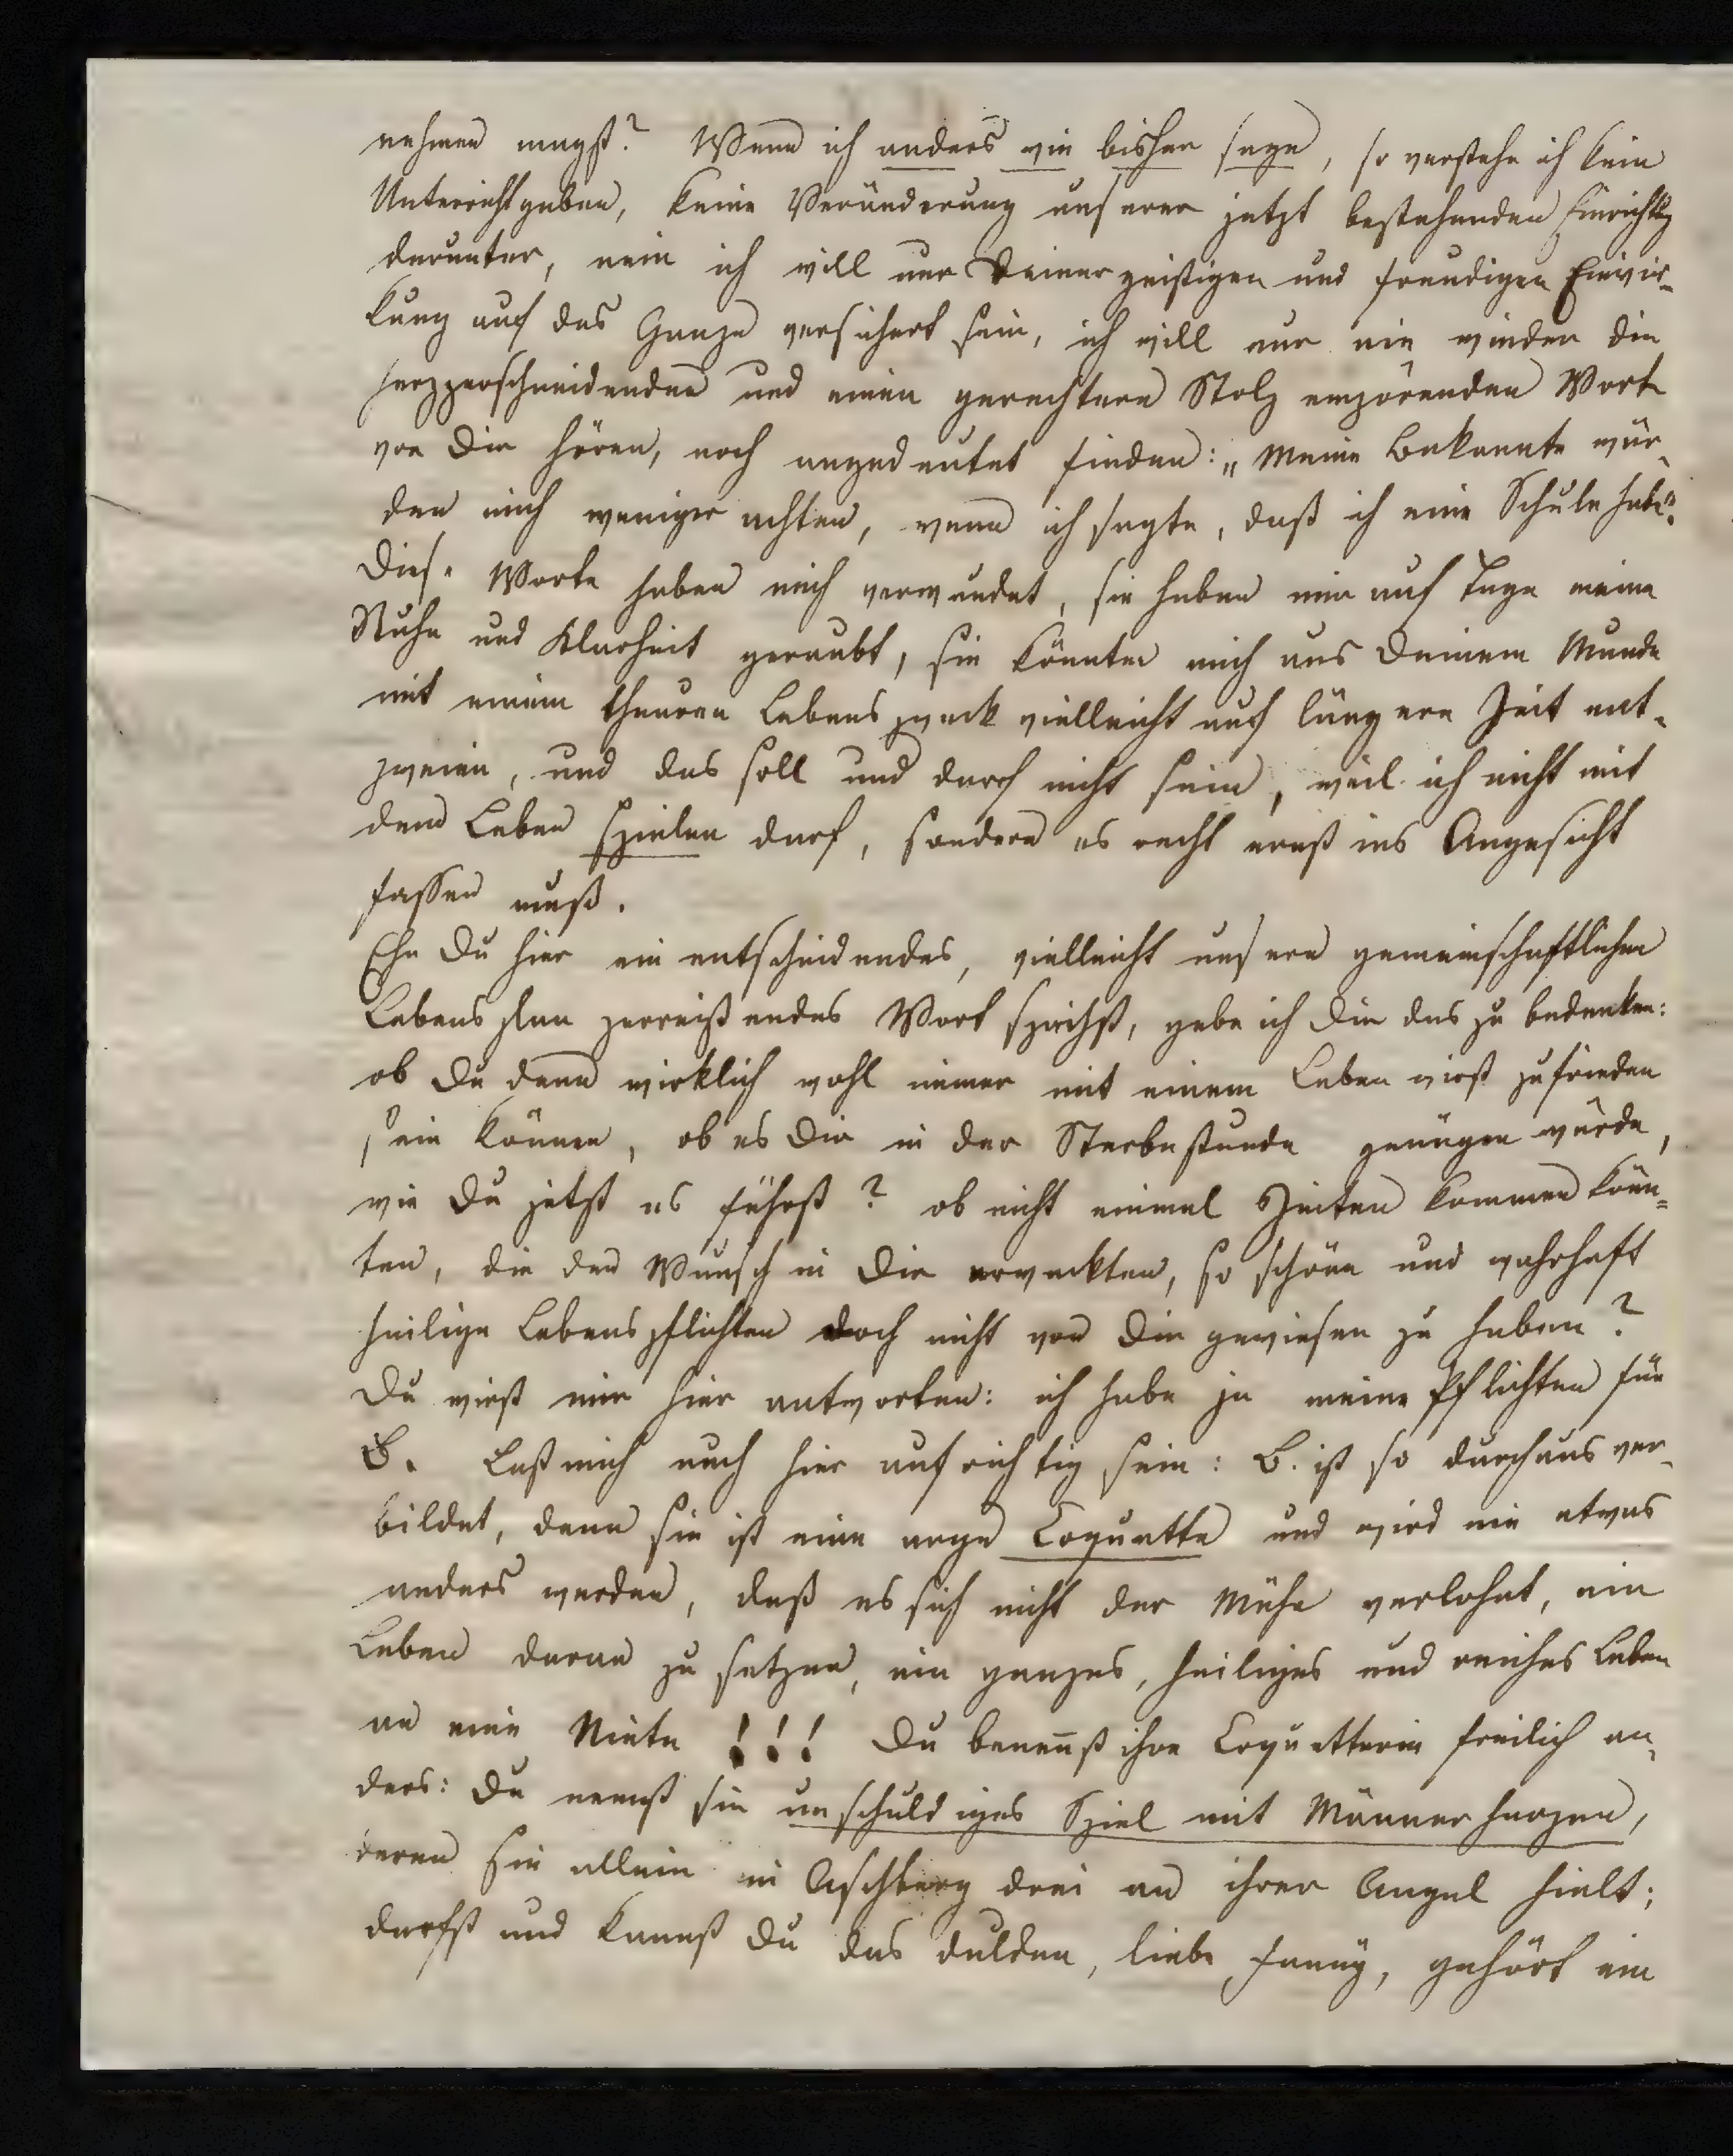 nehmen magst? Wenn ich anders wie bisher sage, so verstehe ich kein
Unterrichtgeben, keine Veränderung unserer jetzt bestehenden Einrichtg
darunter, nein ich will nur Deiner geistigen und freudigen Einwir-
kung auf das Ganze versichert sein, ich will nur nie wieder die
herzzerschneidenden und einen gerechteren Stolz empörenden Worte
von Dir hören, noch angedeutet finden: „Meine Bekannte wür-
den mich weniger achten, wenn ich sagte, daß ich eine Schule habe".
Diese Worte haben mich verwundet, sie haben mir auf Tage meine
Ruhe und Klarheit geraubt, sie könnten mich aus Deinem Munde
mit einem theuren Lebenszweck vielleicht auf längere Zeit ent-
zweien, und das soll und darf nicht sein, weil ich nicht mit
dem Leben spielen darf, sondern es recht ernst ins Angesicht
fassen muß.
Ehe Du hier ein entscheidendes, vielleicht unsern gemeinschaftlichen
Lebensplan zerreißendes Wort sprichst, gebe ich Dir das zu bedenken:
ob Du denn wirklich wohl immer mit einem Leben wirst zufrieden
sein können, ob es Dir in der Sterbestunde genügen würde,
wie Du jetzt es führst? ob nicht einmal Zeiten kommen könn-
ten, die den Wunsch in Dir erweckten, so schöne und wahrhaft
heilige Lebenspflichten doch nicht von Dir gewiesen zu haben?
Du wirst mir hier antworten: ich habe ja meine Pflichten für
B. Laß mich auch hier aufrichtig sein: B. ist so durchaus ver-
bildet, denn sie ist eine arge Coquette und wird nie etwas
anders werden, daß es sich nicht der Mühe verlohnt, ein
Leben daran zu setzen, ein ganzes, heiliges und reiches Leben
an eine Niete!!! Du benennst ihre Coquetterie freilich an-
ders: Du nennst sie unschuldiges Spiel mit Männerherzen,
deren sie allein in Aschberg drei an ihrer Angel hielt;
darfst und kannst Du das dulden, liebe Fanny, gehört ein